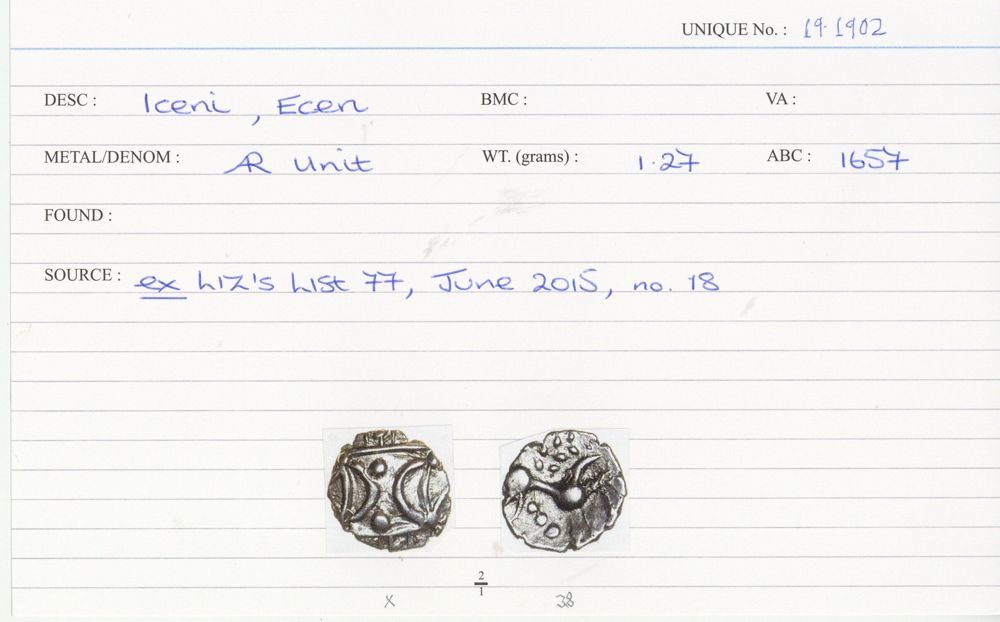 UNIQUE No. : 19·1902
DESC : Iceni, Ecen BMC : VA :
METAL/DENOM : AR Unit WT. (grams) : 1·27 ABC : 1657
FOUND :
SOURCE : ex Liz's List 77, June 2015, no. 18
2
1
X 38